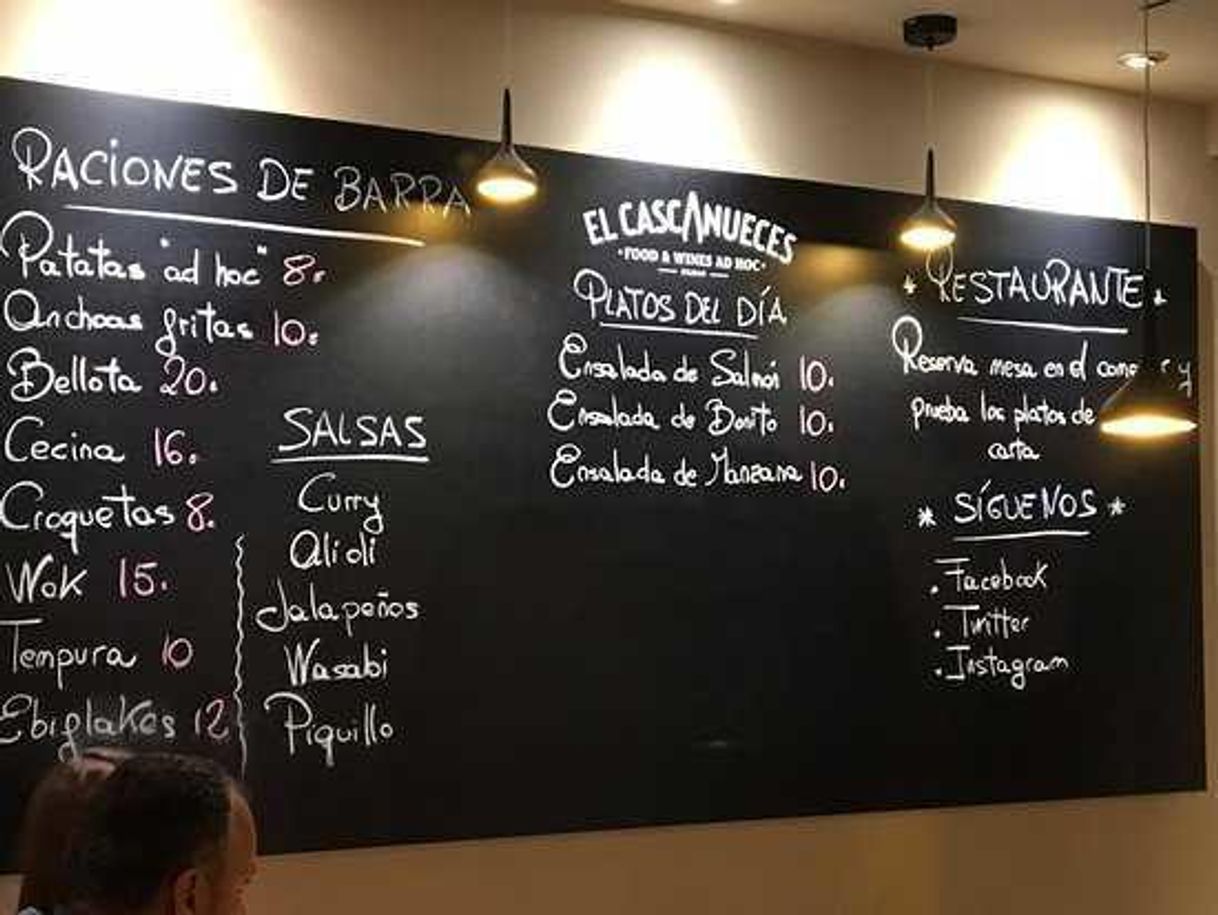 RACIONES DE BARRA
Patatas "ad hoc" 8.
Anchoas fritas 10.
Bellota 20.
Cecina 16.
Croquetas 8.
Wok 15.
Tempura 10
Ebiflakes 12
SALSAS
Curry
Alioli
Jalapeños
Wasabi
Piquillo
EL CASCANUECES
· FOOD & WINES AD HOC ·
PLATOS DEL DÍA
Ensalada de Salmón 10.
Ensalada de Bonito 10.
Ensalada de Manzana 10.
* RESTAURANTE *
Reserva mesa en el y
prueba los platos de
carta
* SÍGUENOS *
. Facebook
. Twitter
. Instagram